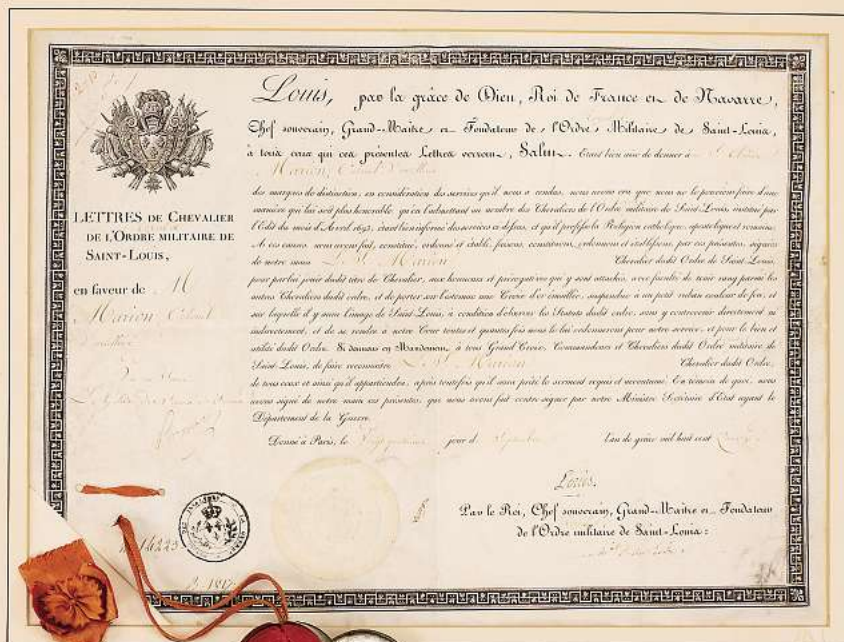 Louis, par la grâce de Dieu, Roi de France et de Navarre,
Chef souverain, Grand-Maître et Fondateur de l'Ordre Militaire de Saint-Louis,
à tous ceux qui ces présentes Lettres verront, Salut. Etant bien aise de donner à
Marion, Colonel d'
des marques de distinction, en considération des services qu'il nous a rendus, nous avons cru que nous ne le pouvions faire d'une
manière qui lui soit plus honorable qu'en l'admettant au nombre des Chevaliers de l'Ordre militaire de Saint-Louis, institué par
l'Edit du mois d'Avril 1693, étant bien informé des services ci-dessus, et qu'il professe la Religion catholique, apostolique et romaine.
A ces causes, nous avons fait, constitué, ordonné et établi, faisons, constituons, ordonnons et établissons par ces présentes, signées
de notre main Le Sr. Marion Chevalier dudit Ordre de Saint-Louis,
pour par lui jouir dudit titre de Chevalier, aux honneurs et prérogatives qui y sont attachés, avec faculté de tenir rang parmi les
autres Chevaliers dudit ordre, et de porter sur l'estomac une Croix d'or émaillée, suspendue à un petit ruban couleur de feu, et
sur laquelle il y aura l'image de Saint-Louis, à condition d'observer les Statuts dudit ordre, sans y contrevenir directement ni
indirectement, et de se rendre à notre Cour toutes et quantes fois nous le lui ordonnerons pour notre service, et pour le bien et
utilité dudit Ordre. Si donnons en Mandement à tous Grand'Croix, Commandeurs et Chevaliers dudit Ordre militaire de
Saint-Louis, de faire reconnaître Le Sr. Marion Chevalier dudit Ordre,
de tous ceux et ainsi qu'il appartiendra, après toutefois qu'il aura prêté le serment requis et accoutumé. En témoin de quoi, nous
avons signé de notre main ces présentes, que nous avons fait contre-signer par notre Ministre Secrétaire d'Etat ayant le
Département de la Guerre.
Donné à Paris, le jour de Septembre l'an de grâce mil huit cent
Louis
Par le Roi, Chef souverain, Grand-Maître et Fondateur
de l'Ordre militaire de Saint-Louis:
LETTRES DE CHEVALIER
DE L'ORDRE MILITAIRE DE
SAINT-LOUIS,
en faveur de M
Marion Colonel
14223